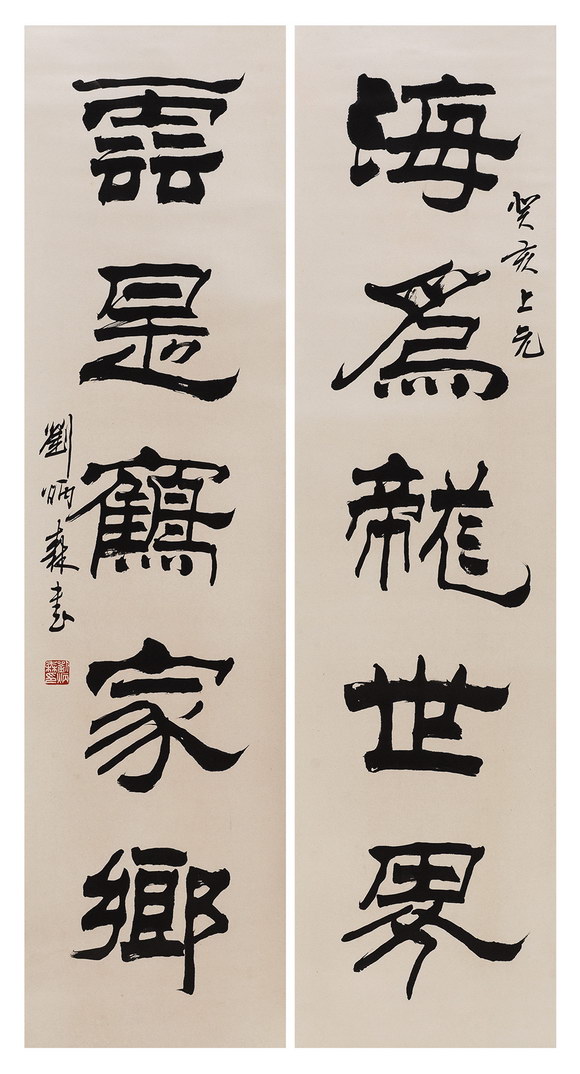 海為龍世界
癸亥上元
雲是鶴家鄉
劉炳森書